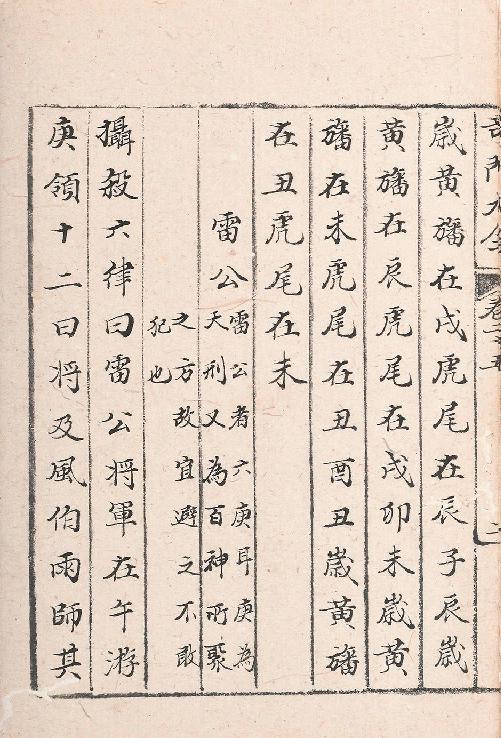 歲黃旛在戌虎尾在辰子辰歲
黃旛在辰虎尾在戌卯未歲黃
旛在未虎尾在丑酉丑歲黃旛
在丑虎尾在未
雷公
雷公者六庚耳庚為
天刑又為百神所聚
之方故宜避之不敢
犯也
攝殺六律曰雷公將軍在午游
庚領十二曰将及風伯雨師其